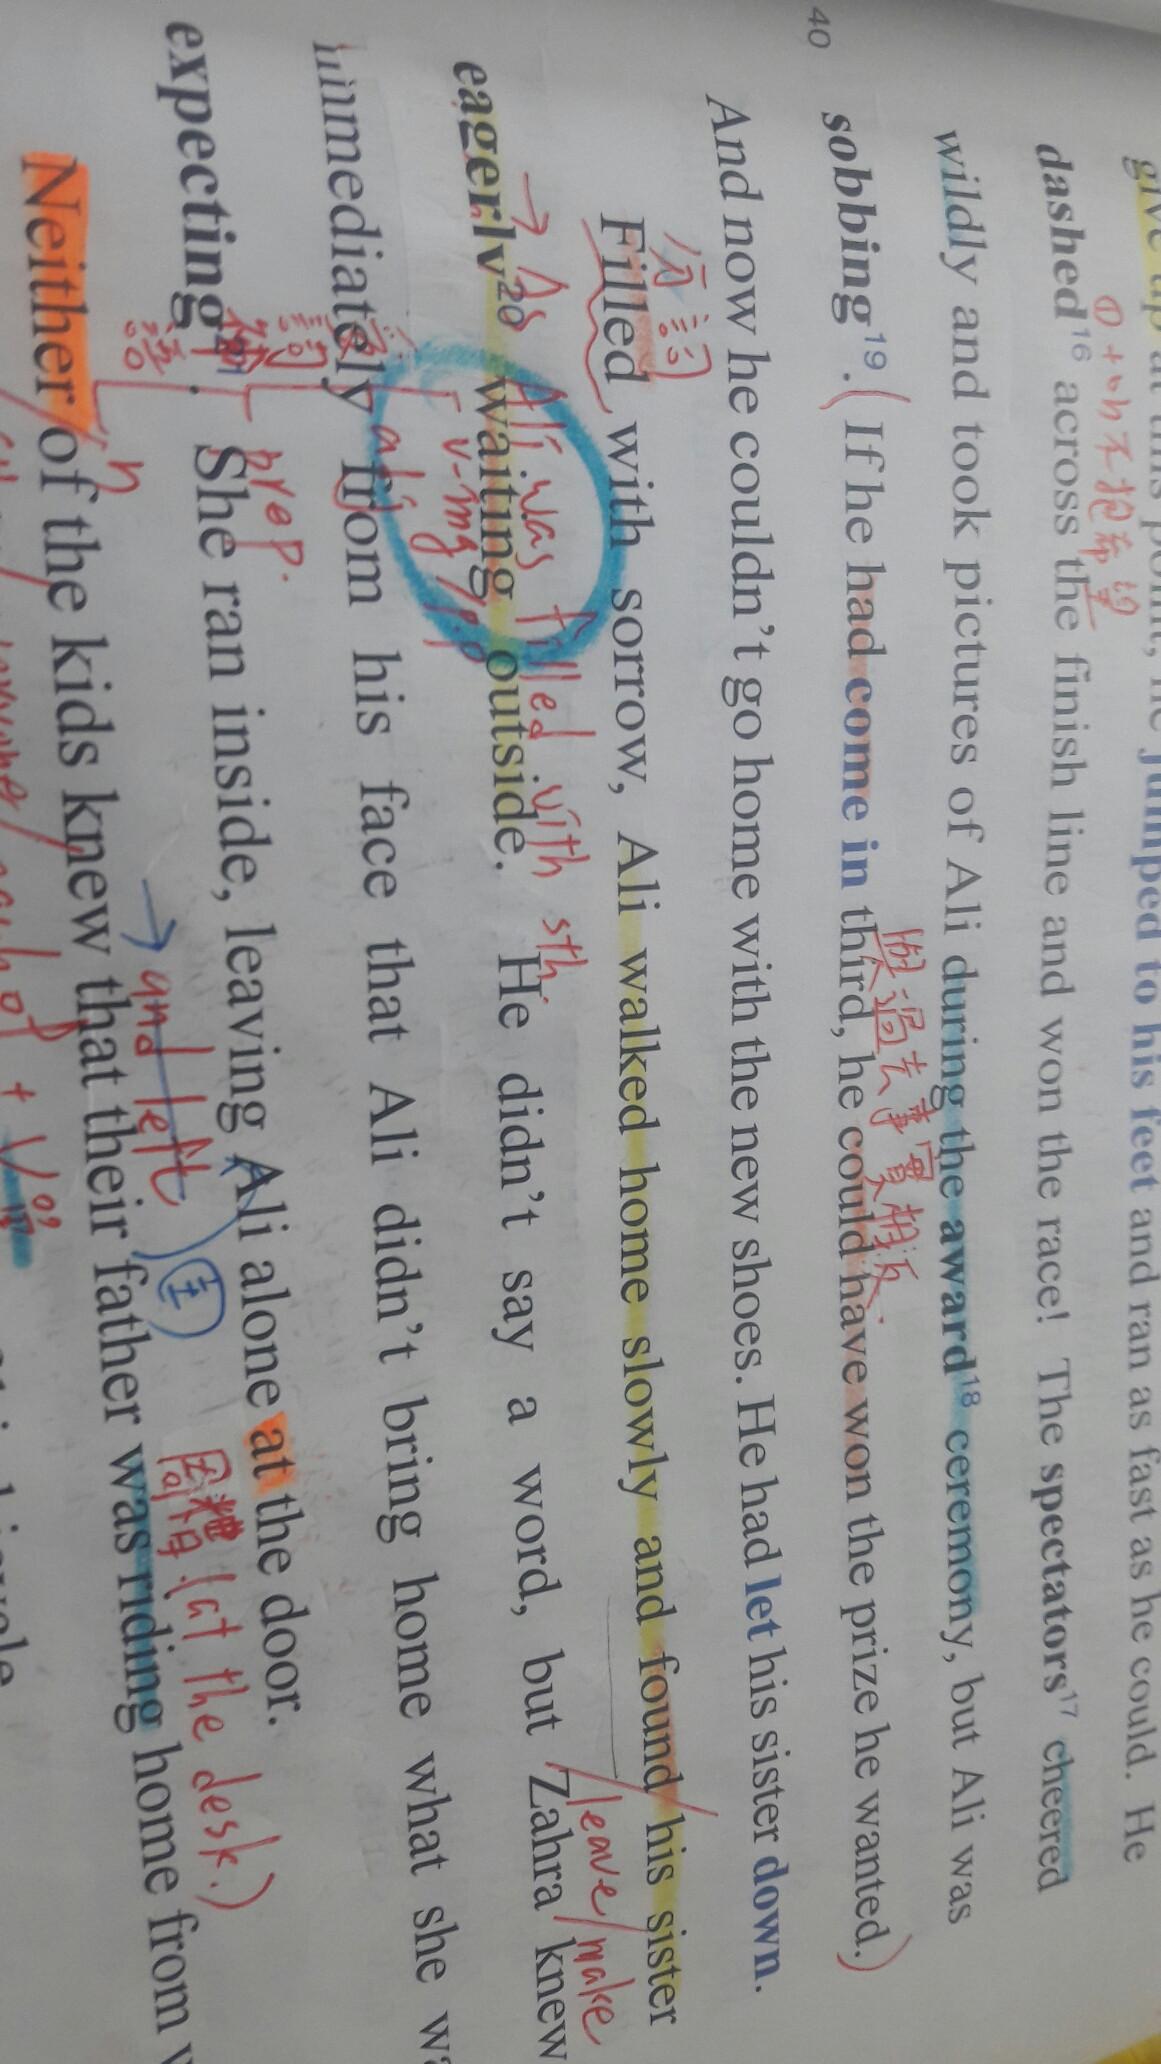 give up at this point, he jumped to his feet and ran as fast as he could. He
①+ wh不抱希望
dashed16 across the finish line and won the race! The spectators17 cheered
wildly and took pictures of Ali during the award18 ceremony, but Ali was
與過去事實相反
40
sobbing19. (If he had come in third, he could have won the prize he wanted.)
And now he couldn't go home with the new shoes. He had let his sister down.
分詞
Filled with sorrow, Ali walked home slowly and found his sister
→ As Ali was filled with sth.
/leave/make
eagerly20 waiting outside. He didn't say a word, but Zahra knew
v-ing/p.p
adj
immediately from his face that Ali didn't bring home what she
prep.
n
expecting21. She ran inside, leaving Ali alone at the door.
→ and left
主
(at the desk.)
Neither of the kids knew that their father was riding home from